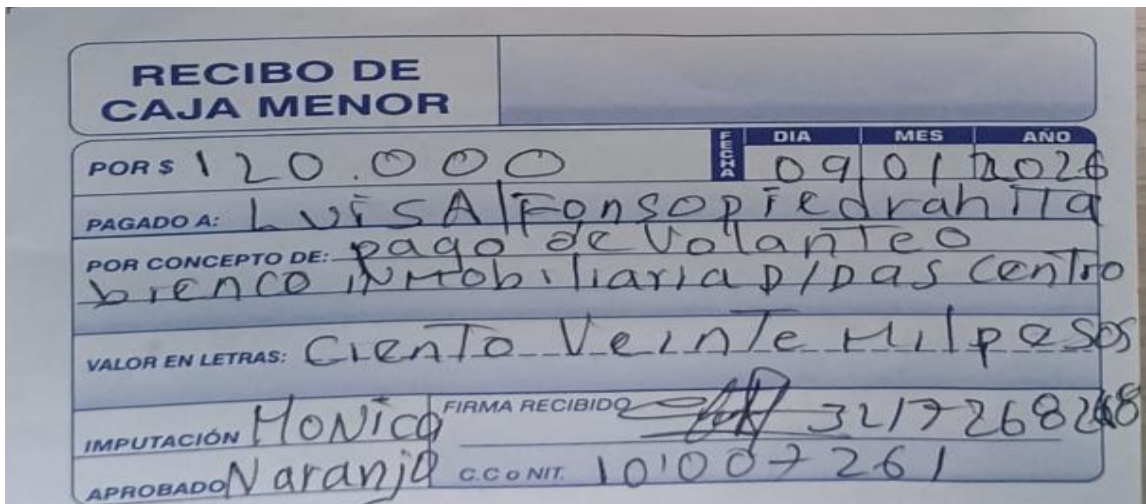 RECIBO DE
CAJA MENOR
FECHA DIA MES AÑO
POR $ 120.000 09 01 2026
PAGADO A: LUiSA Fonsopiedrahita
POR CONCEPTO DE: pago de volanteo
brenco iNMobiliaria p/pas centro
VALOR EN LETRAS: Ciento Veinte Mil pesos
IMPUTACIÓN MONica FIRMA RECIBIDO
APROBADO Naranjo C.C o NIT. 10'007261